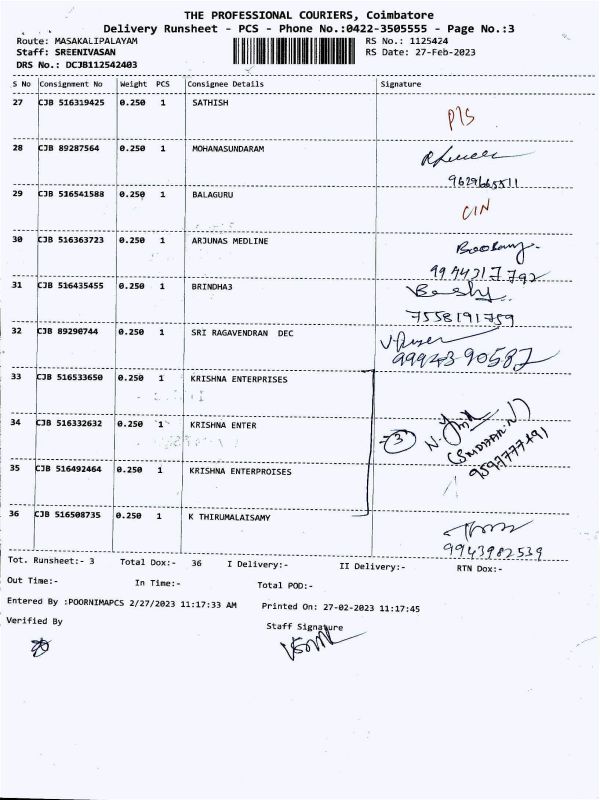 THE PROFESSIONAL COURIERS, Coimbatore
Delivery Runsheet - PCS - Phone No.:0422-3505555 - Page No.:3
Route: MASAKALIPALAYAM RS No.: 1125424
Staff: SREENIVASAN RS Date: 27-Feb-2023
DRS No.: DCJB112542403
S No Consignment No Weight PCS Consignee Details Signature
27 CJB 516319425 0.250 1 SATHISH P/S
28 CJB 89287564 0.250 1 MOHANASUNDARAM
9629665511
29 CJB 516541588 0.250 1 BALAGURU CIN
30 CJB 516363723 0.250 1 ARJUNAS MEDLINE
9944217792
31 CJB 516435455 0.250 1 BRINDHA3
7558191759
32 CJB 89290744 0.250 1 SRI RAGAVENDRAN DEC
9994390587
33 CJB 516533650 0.250 1 KRISHNA ENTERPRISES
34 CJB 516332632 0.250 1 KRISHNA ENTER 3
35 CJB 516492464 0.250 1 KRISHNA ENTERPROISES
36 CJB 516508735 0.250 1 K THIRUMALAISAMY
9943982539
Tot. Runsheet:- 3 Total Dox:- 36 I Delivery:- II Delivery:- RTN Dox:-
Out Time:- In Time:- Total POD:-
Entered By :POORNIMAPCS 2/27/2023 11:17:33 AM Printed On: 27-02-2023 11:17:45
Verified By Staff Signature